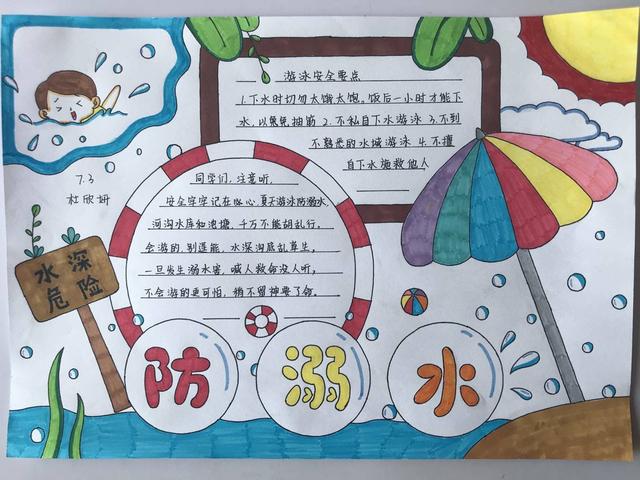 游泳安全要点
1.下水时切勿太饿太饱。饭后一小时才能下
水,以免抽筋 2.不私自下水游泳 3.不到
不熟悉的水域游泳 4.不擅
自下水施救他人
7.3
杜欣妍
同学们,注意听,
安全牢记在心心,夏天游泳防溺水,
河沟水库和池塘,千万不能胡乱行,
会游的,别逞能,水深沟底乱草生,
一旦发生溺水害,喊人救命没人听,
不会游的更可怕,稍不留神要了命。
水深
危险
防溺水